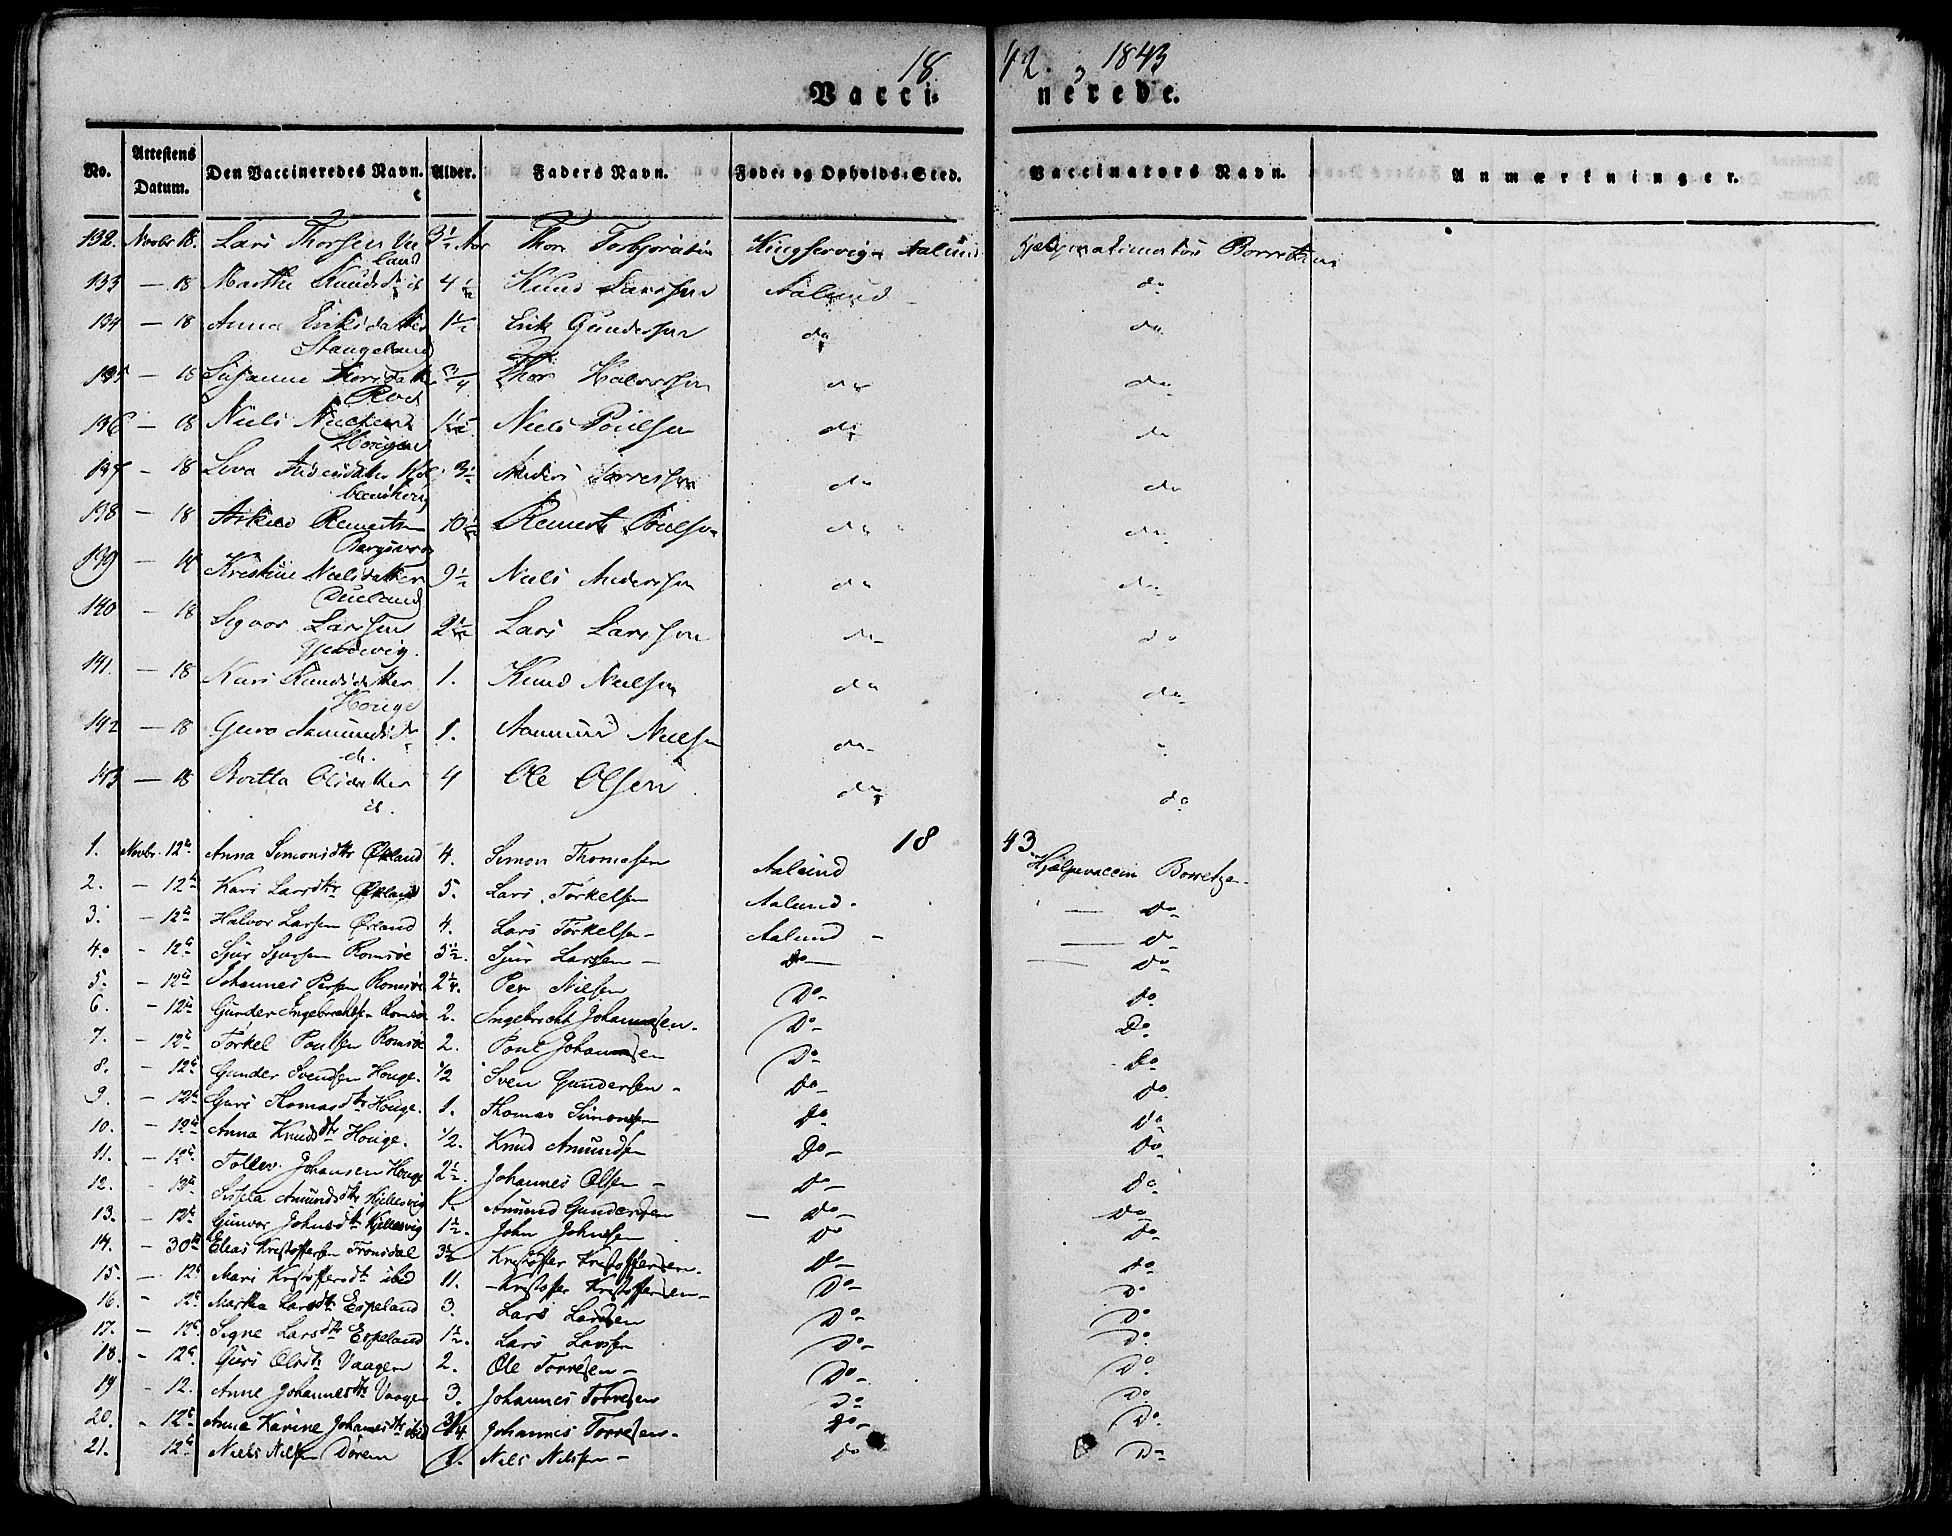 18 42. 1843
Vacci- nerede.
No. Attestens Datum. Den Vaccineredes Navn. Alder. Faders Navn. Føde- og Opholds-Sted. Vaccinators Navn. Anmærkninger.
132. Novbr 18. Lars Thorsen 3½ Aar Thor
133 — 18 Marthe 4½ Knud Larssen Aalund do
134 — 18 Anna Eriksdatter 1½ Erik Gundersen do do
Stangeland
135 — 18 Susanne ¾ Thor Halvorsen do do
136 — 18 Niels 1½ Niels Poulsen do do
137 — 18 3½ Anders do do
138 — 18 Remertsen 10½ Remert Poulsen do do
139 — 18 Kristine Nielsdatter 9½ Niels Andersen do do
140 — 18 Larssen 2½ Lars Larssen do do
141. — 18 Kari Knudsdatter 1. Knud Nielsen do do
Houge
142 — 18 Guro Aamundsdr 1. Aamund Nielsen do
143 — 18 Britta Olsdatter 4 Ole Olsen do do
18 43
1. Novbr. 12te Anna Simonsdtr Økland 4. Simon Thomesen Aalund Hjelpevaccin Borretze
2. — 12te Kari Larsdtr Økland 5. Lars Torkelsen Aalund. — Do
3. — 12te Halvor Larsen Økland 4. Lars Torkelsen — Aalund — Do
4. — 12te Sjur Sjursen Romsöe 3½. Sjur Larsen — Do — Do
5. — 12te Johannes Persen Romsöe 2¼. Per Nielsen Do Do
6. — 12te Gunder Engebrechtsen Romsöe 2. Ingebrecht Johannesen. Do Do
7. — 12te Torkel Poulsen Romsöe 2. Poul Johannesen Do Do
8. — 12te Gunder Svendsen Houge. ½ Sven Gundersen — Do Do
9. — 12te Guri Thomasdtr Houge. 1. Thomas Simonsen Do Do
10. — 12te Anna Knudsdtr Houge. ½. Knud Amundsen Do Do
11. — 12te Tollev Johansen Houge 2½. Johannes Olsen — Do Do
12. — 12te Amundsdtr Kjillesvig Amund Gundersen Do Do
13. — 12te Gunvor Johnsdtr Kjillesvig 1½. John Johnsen Do Do
14. — 30te Elias Kristoffersen Fronsdal 3½ Kristoffer Kristoffersen. Do Do
15. — 12te Mari Kristoffersdtr ibid 11. Kristoffer Kristoffersen Do Do
16. — 12te Martha Larsdtr Espeland 3. Lars Larsen Do Do
17. — 12te Signe Larsdtr Espeland 1½. Lars Larsen Do Do
18. — 12te Guri Olsdtr Vaagen 2. Ole Torresen — Do Do
19 — 12. Anne Johannesdtr Vaagen 3. Johannes Torresen Do Do
20. — 12te Anna Karine Johannesdtr ibid ¾. Johannes Torresen. Do Do
21. 12te Niels Nilsen 1. Nels Nilssen — do Do